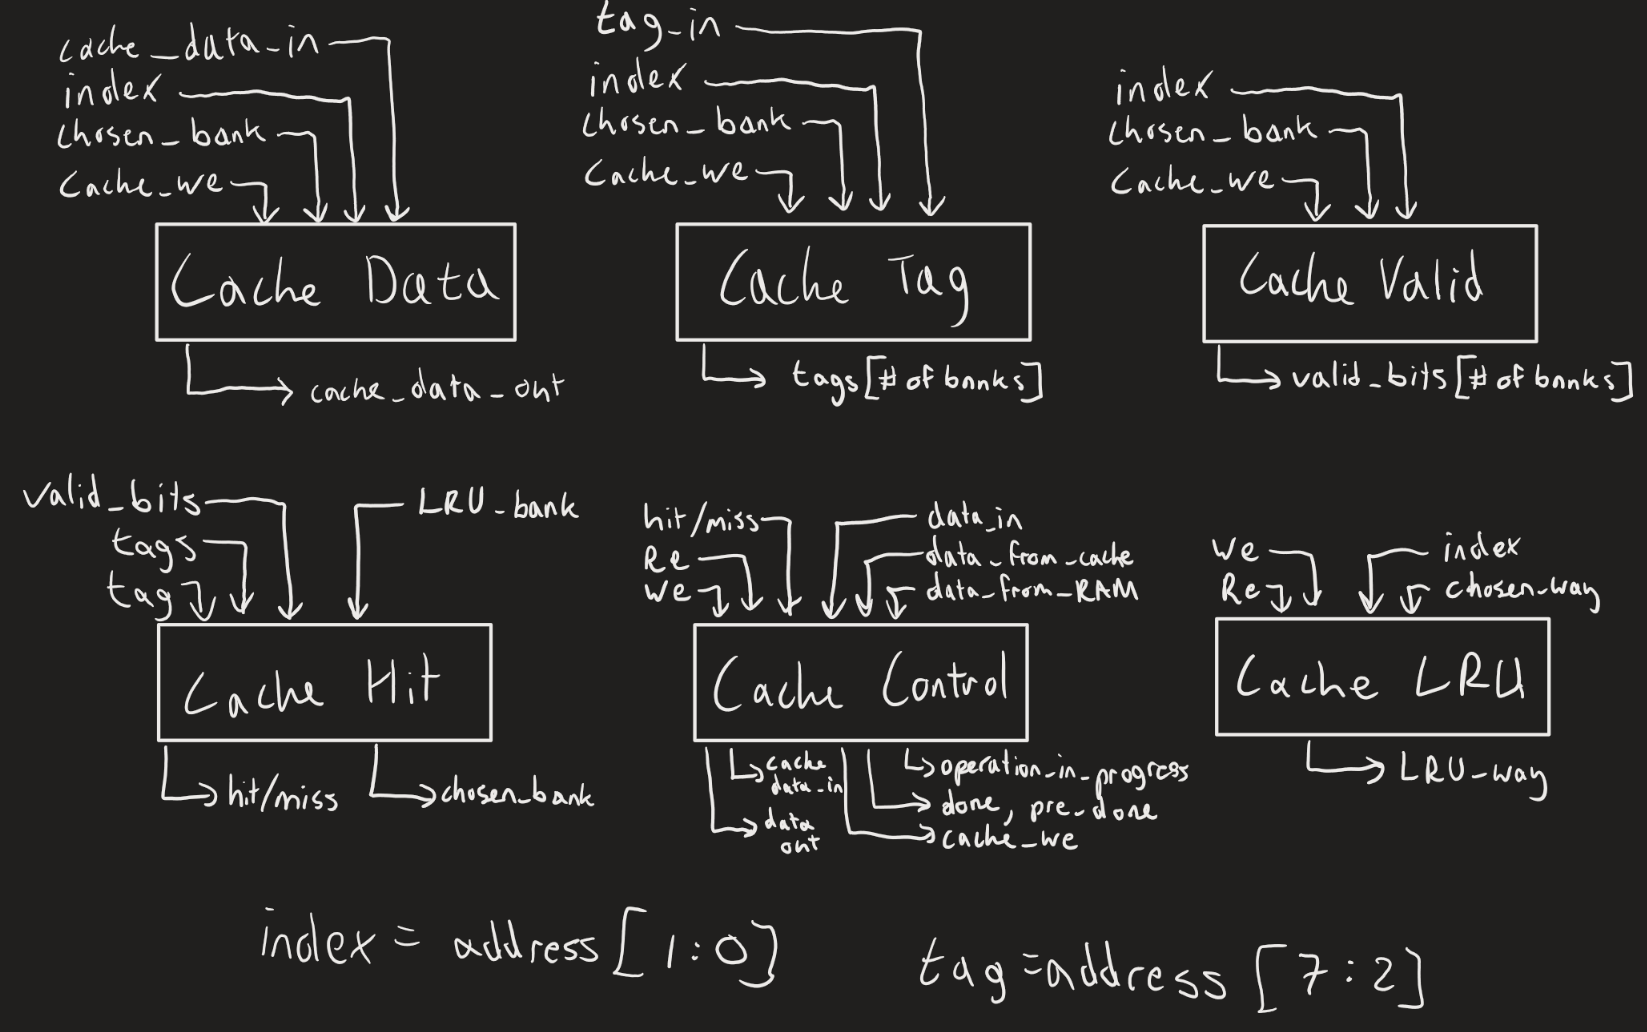 cache_data_in
index
chosen_bank
Cache_we
Cache Data
cache_data_out
tag_in
index
chosen_bank
Cache_we
Cache Tag
tags[# of banks]
index
chosen_bank
Cache_we
Cache Valid
valid_bits[# of banks]
valid_bits
tags
tag
LRU_bank
Cache Hit
hit/miss
chosen_bank
hit/miss
Re
We
data_in
data_from_cache
data_from_RAM
Cache Control
cache
data_in
data
out
operation_in_progress
done, pre_done
cache_we
We
Re
index
chosen_way
Cache LRU
LRU_way
index = address[1:0]
tag=address[7:2]